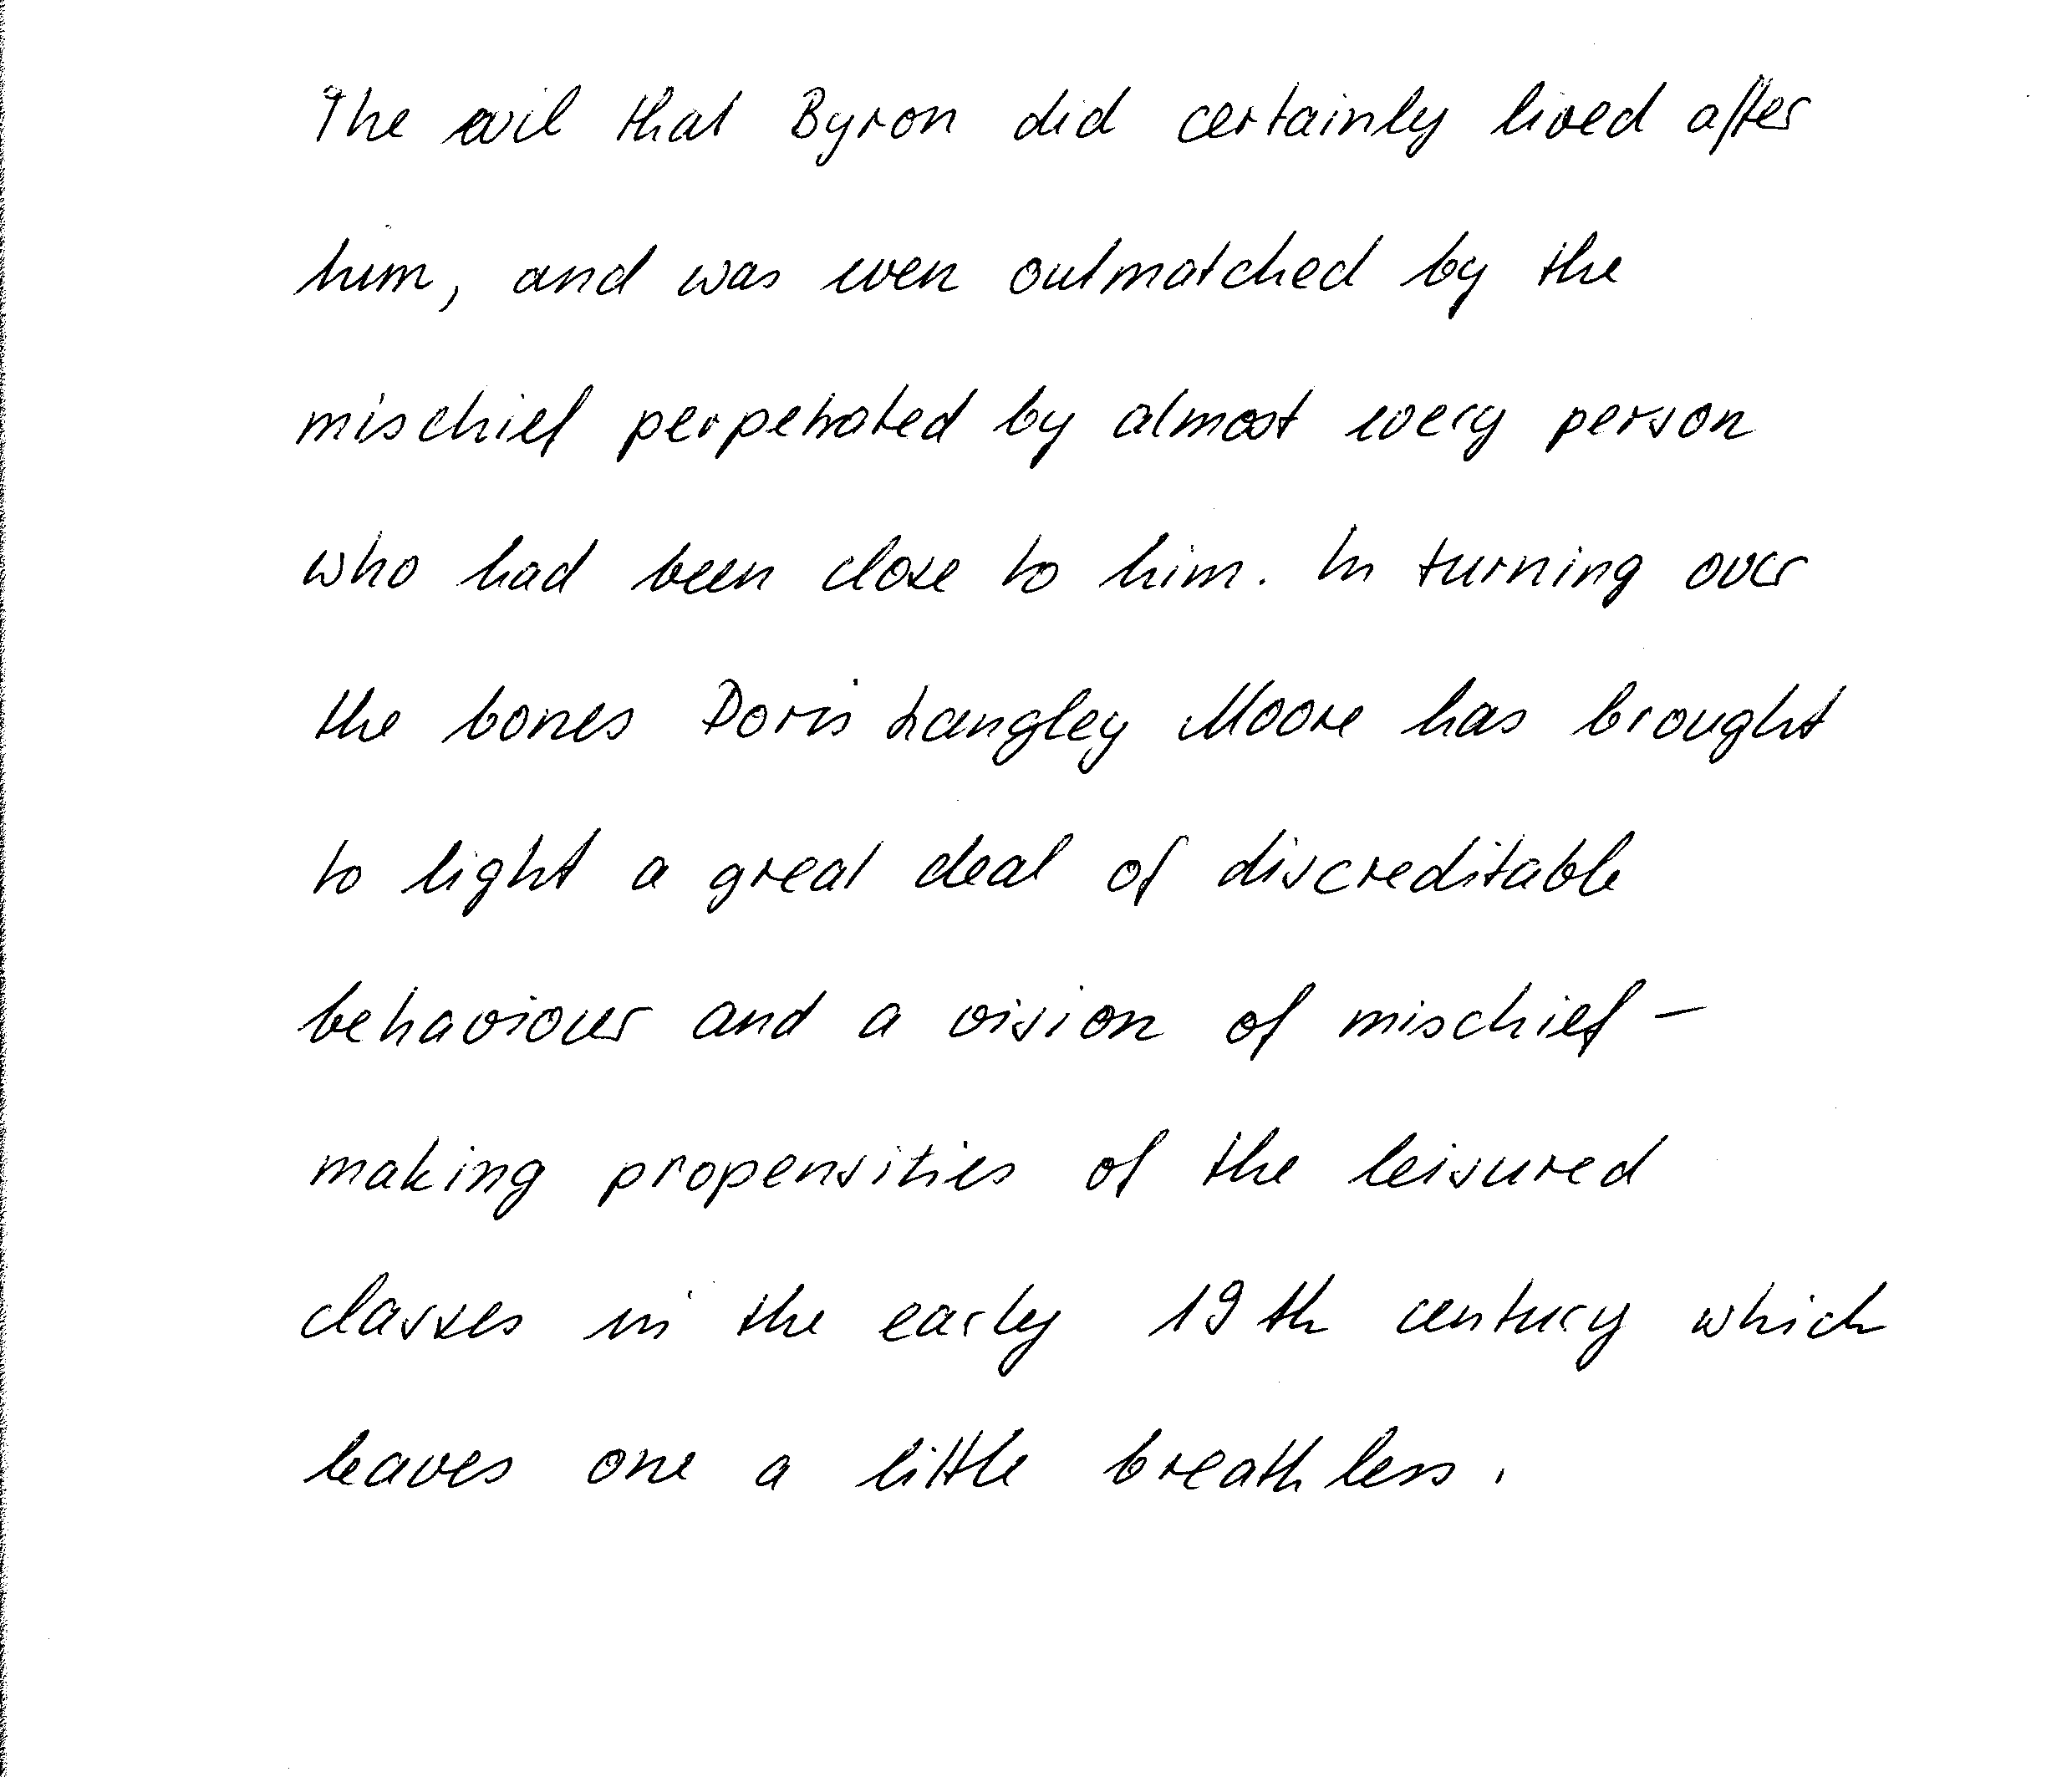 The evil that Byron did certainly lived after
him, and was even outmatched by the
mischief perpetrated by almost every person
who had been close to him. In turning over
the bones Doris Langley Moore has brought
to light a great deal of discreditable
behaviour and a vision of mischief -
making propensities of the leisured
classes in the early 19th century which
leaves one a little breathless.